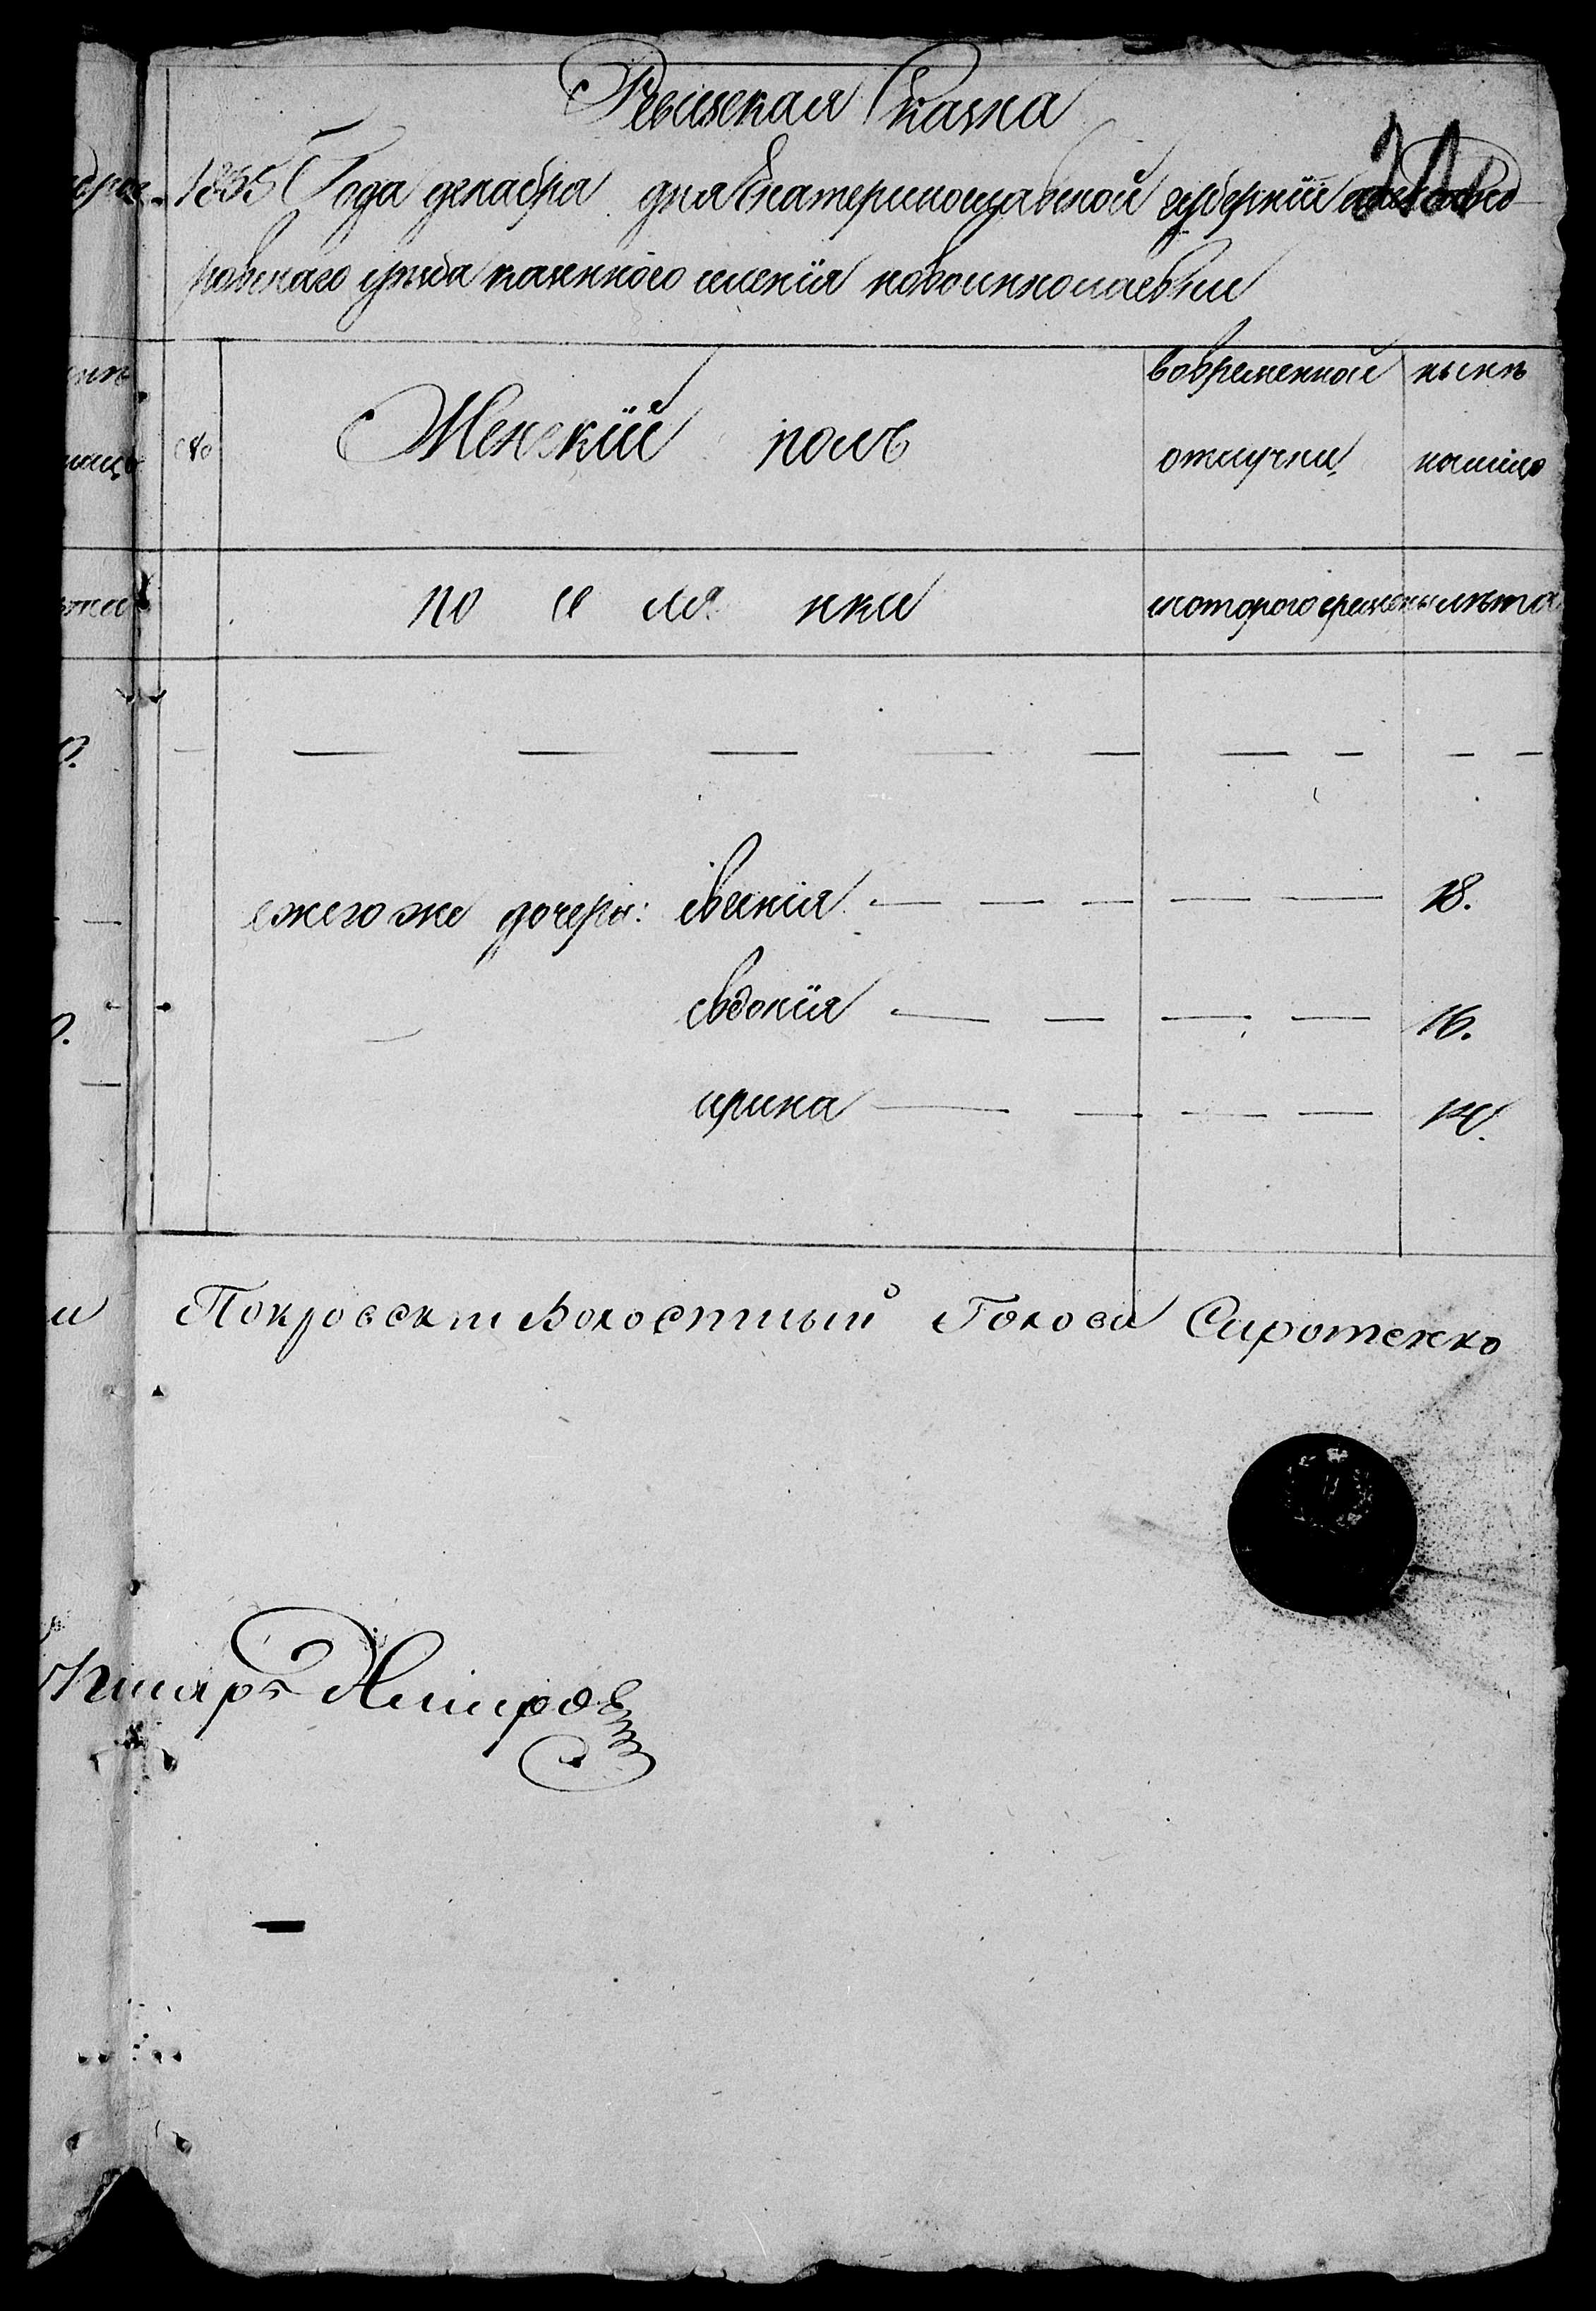 Ревизская Сказка
1835 Года декабря дня Екатеринославской губернїи александ
ровскаго уезда казенного селенїя новониколаевки
№ Женскїй полъ вовременной отлучки ныне налицо
поселянки скоторого времени лета
ежегоже дочери: евгенїя 18.
евдокїя 16.
ирина 14.
Покровский Волостный Голова Сиротенко